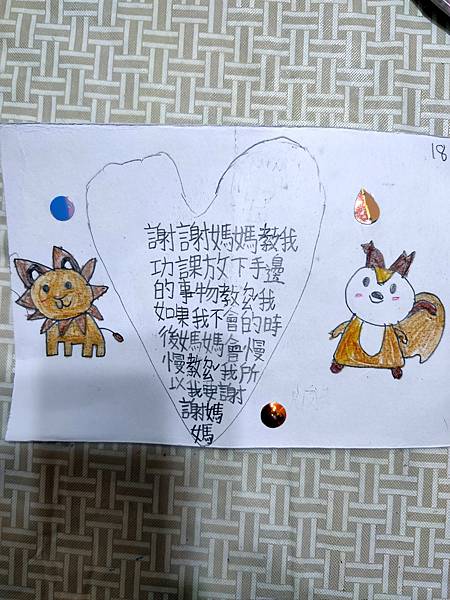 18
謝謝媽媽教我
功課放下手邊
的事物教我
如果我不會的時
後媽媽會慢
慢教我所
以我要謝
謝媽
媽